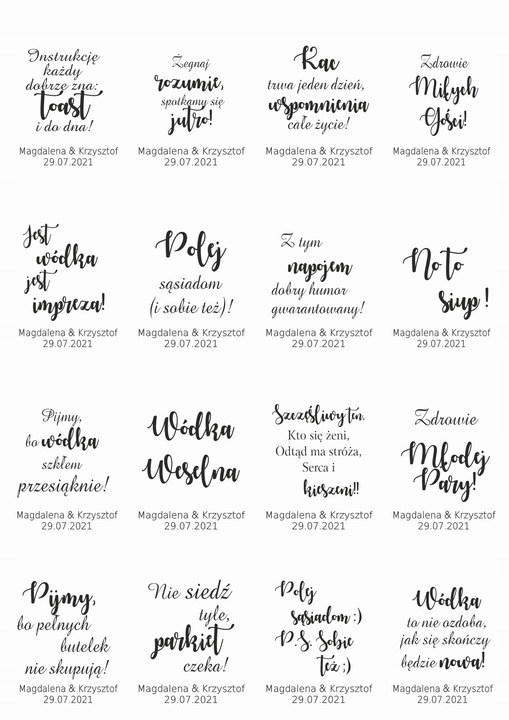 Instrukcję
każdy
dobrze zna:
toast
i do dna!
Magdalena & Krzysztof
29.07.2021
Żegnaj
rozumie,
spotkamy się
jutro!
Magdalena & Krzysztof
29.07.2021
Kac
trwa jeden dzień,
wspomnienia
całe życie!
Magdalena & Krzysztof
29.07.2021
Zdrowie
Miłych
Gości!
Magdalena & Krzysztof
29.07.2021
Jest
wódka
jest
impreza!
Magdalena & Krzysztof
29.07.2021
Polej
sąsiadom
(i sobie też)!
Magdalena & Krzysztof
29.07.2021
Z tym
napojem
dobry humor
gwarantowany!
Magdalena & Krzysztof
29.07.2021
No to
siup !
Magdalena & Krzysztof
29.07.2021
Pijmy,
bo wódka
szkłem
przesiąknie!
Magdalena & Krzysztof
29.07.2021
Wódka
Weselna
Magdalena & Krzysztof
29.07.2021
Szczęśliwy ten,
Kto się żeni,
Odtąd ma stróża,
Serca i
kieszeni!!
Magdalena & Krzysztof
29.07.2021
Zdrowie
Młodej
Pary!
Magdalena & Krzysztof
29.07.2021
Pijmy,
bo pełnych
butelek
nie skupują!
Magdalena & Krzysztof
29.07.2021
Nie siedź
tyle,
parkiet
czeka!
Magdalena & Krzysztof
29.07.2021
Polej
sąsiadom :)
P.S. Sobie
też ;)
Magdalena & Krzysztof
29.07.2021
Wódka
to nie ozdoba,
jak się skończy
będzie nowa!
Magdalena & Krzysztof
29.07.2021